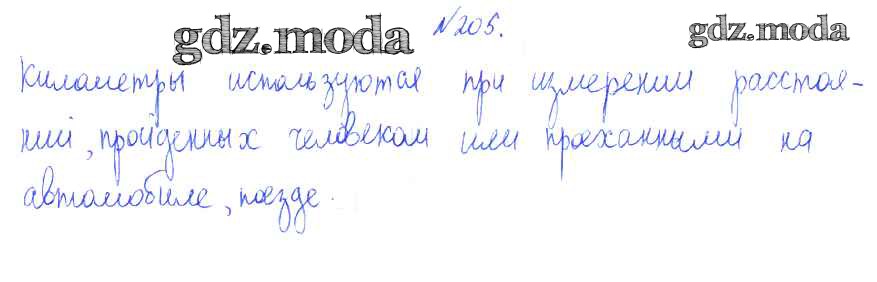 gdz.moda №205. gdz.moda
Километры используются при измерении расстоя-
ний, пройденных человеком или проеханными на
автомобиле, поезде.